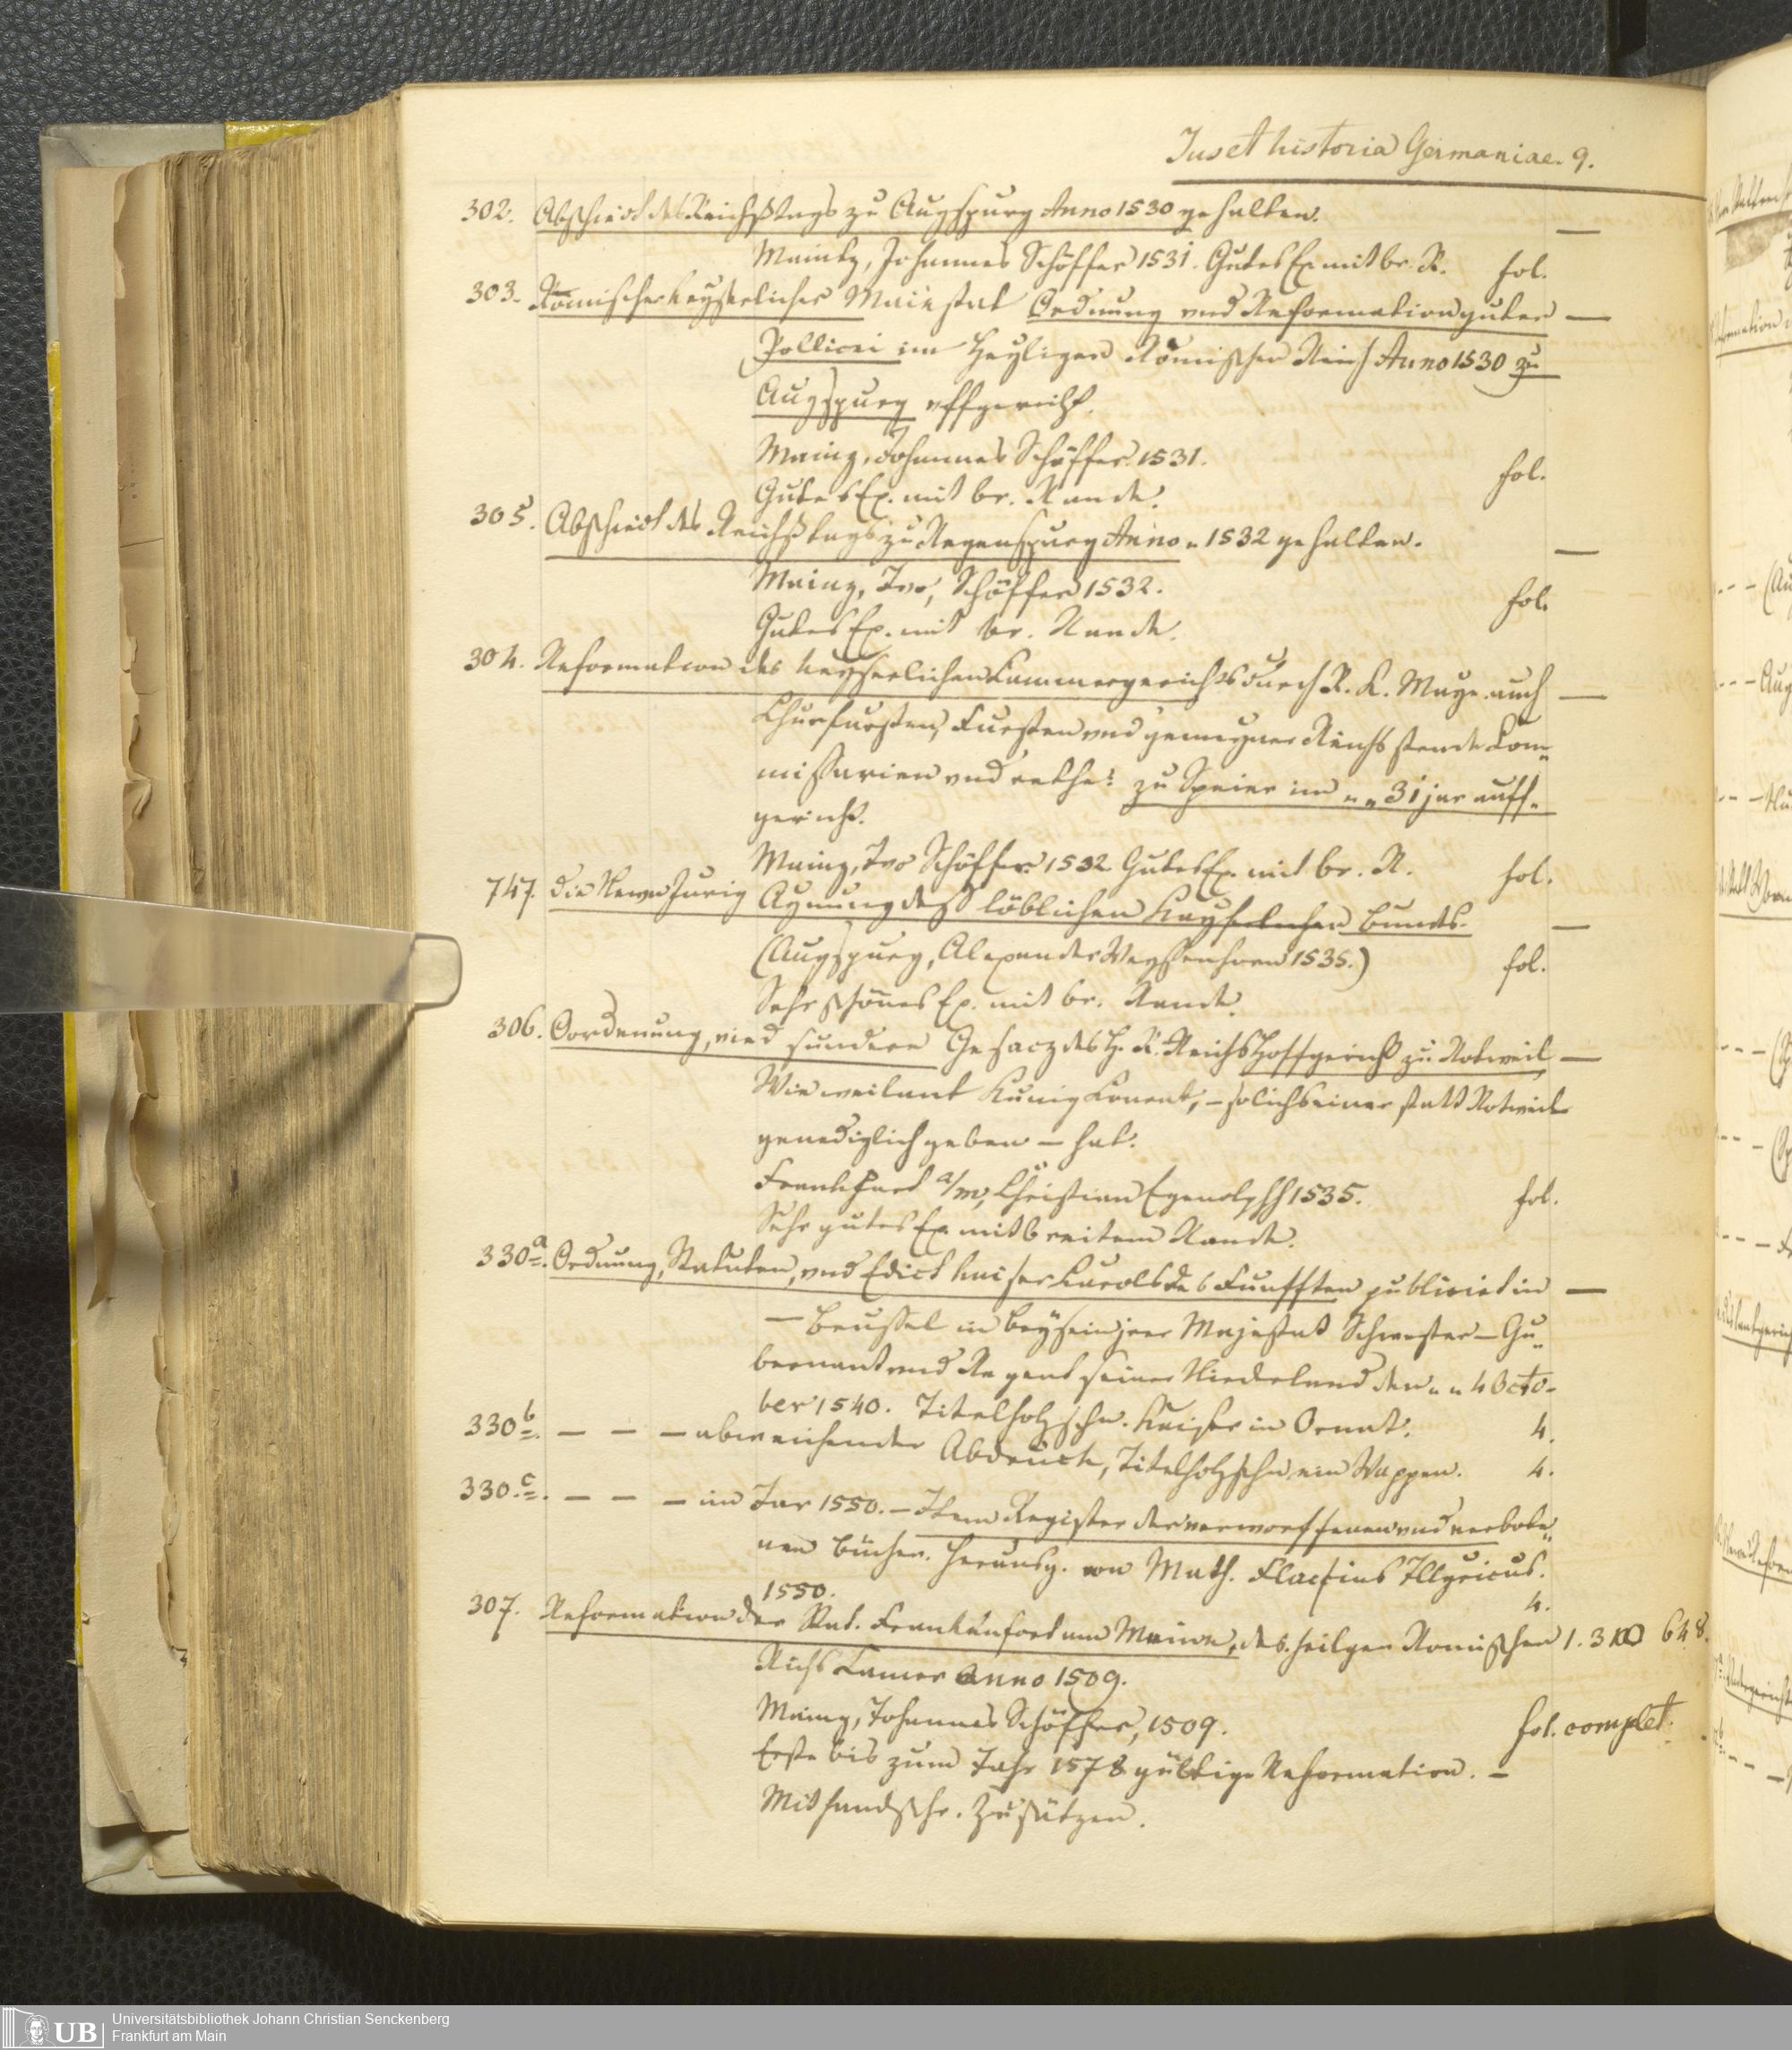 Jus et historia Germaniae. 9.
302. Abschiedt des Reichßtags zu Augspurg Anno 1530 gehalten. —
Maintz, Johannes Schöffer 1531. Gutes Ex. mit br. R. fol.
303. Römischer keyserlicher Maiestat Ordnung vnd Reformation guter —
Pollicei im Heyligen Römischen Reich Anno 1530 zu
Augspurg uffgericht.
Mainz, Johannes Schöffer 1531. fol.
Gutes Ex. mit br. Rande.
305. Abschiedt des Reichßtags zu Regenspurg Anno „ 1532 gehalten. —
Mainz, Ivo, Schöffer 1532. fol.
Gutes Ex. mit br. Rande.
304. Reformation des keyserlichen Cammergerichts durch R. K. Maye. auch —
Churfursten, Fursten vnd gemeyner Reichs stende Com„
missarien vnd rethe: zu Speier im „ „ 31 jar auff„
gericht.
Mainz, Ivo Schöffer 1532 Gutes Ex. mit br. R. fol.
747. Die Newn Jurig Aynung deß löblichen Kayserlichen Bunds. —
(Augspurg, Alexander Weyssenhorn 1535.) fol.
Sehr schönes Ex. mit br. Rande.
306. Oordenung, vnd sundere Gesacz des H. R. Reichs Hoffgericht zu Rotweil —
Wie weilant Kunig Conrat, – solichs einer statt Rotweil
genediglich geben – hat.
Frankfurt a/m, Christian Egenolph 1535. fol.
Sehr gutes Ex. mit breitem Rande.
330a. Ordnung, Statuten, vnd Edict kaiser Karols des Funfften publiciet in —
— Brussel in beysein jrer Majestat Schwester – Gu„
bernant vnd Regent seiner Niederland den „ „ 4 Octo-
ber 1540. Titelholzschn. Kaiser in Ornat. 4.
330b. — — — abweichender Abdruck, Titelholzschn. ein Wappen. 4.
330.c. — — — im Jar 1550. – Item Register der verworffenen vnd verbote„
nen Bücher. Herausg. von Math. Flacius Illyricus.
1550. 4.
307. Reformation der Stat. Franckenfort am Meine, des heilgen Romischen 1. 3 648.
Richs Camer anno 1509.
Mainz, Johannes Schöffer, 1509. fol. complet.
Erste bis zum Jahr 1578 gültige Reformation. –
Mit handschr. Zusätzen.
UB Universitätsbibliothek Johann Christian Senckenberg
Frankfurt am Main